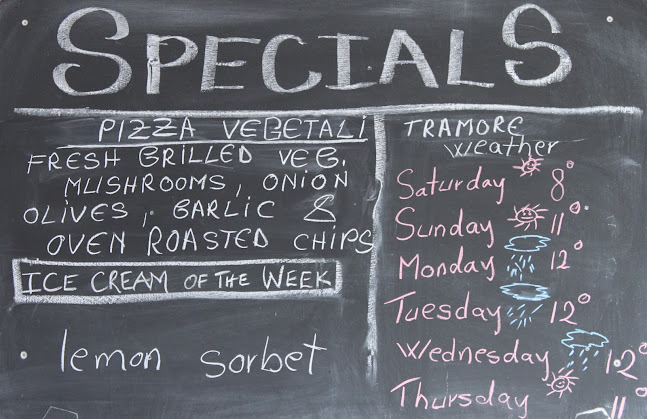 SPECIALS
PIZZA VEGETALI
FRESH GRILLED VEG.
MUSHROOMS, ONION
OLIVES, GARLIC &
OVEN ROASTED CHIPS
ICE CREAM OF THE WEEK
lemon sorbet
TRAMORE
weather
Saturday 8°
Sunday 11°
Monday 12°
Tuesday 12°
Wednesday 12°
Thursday 11°